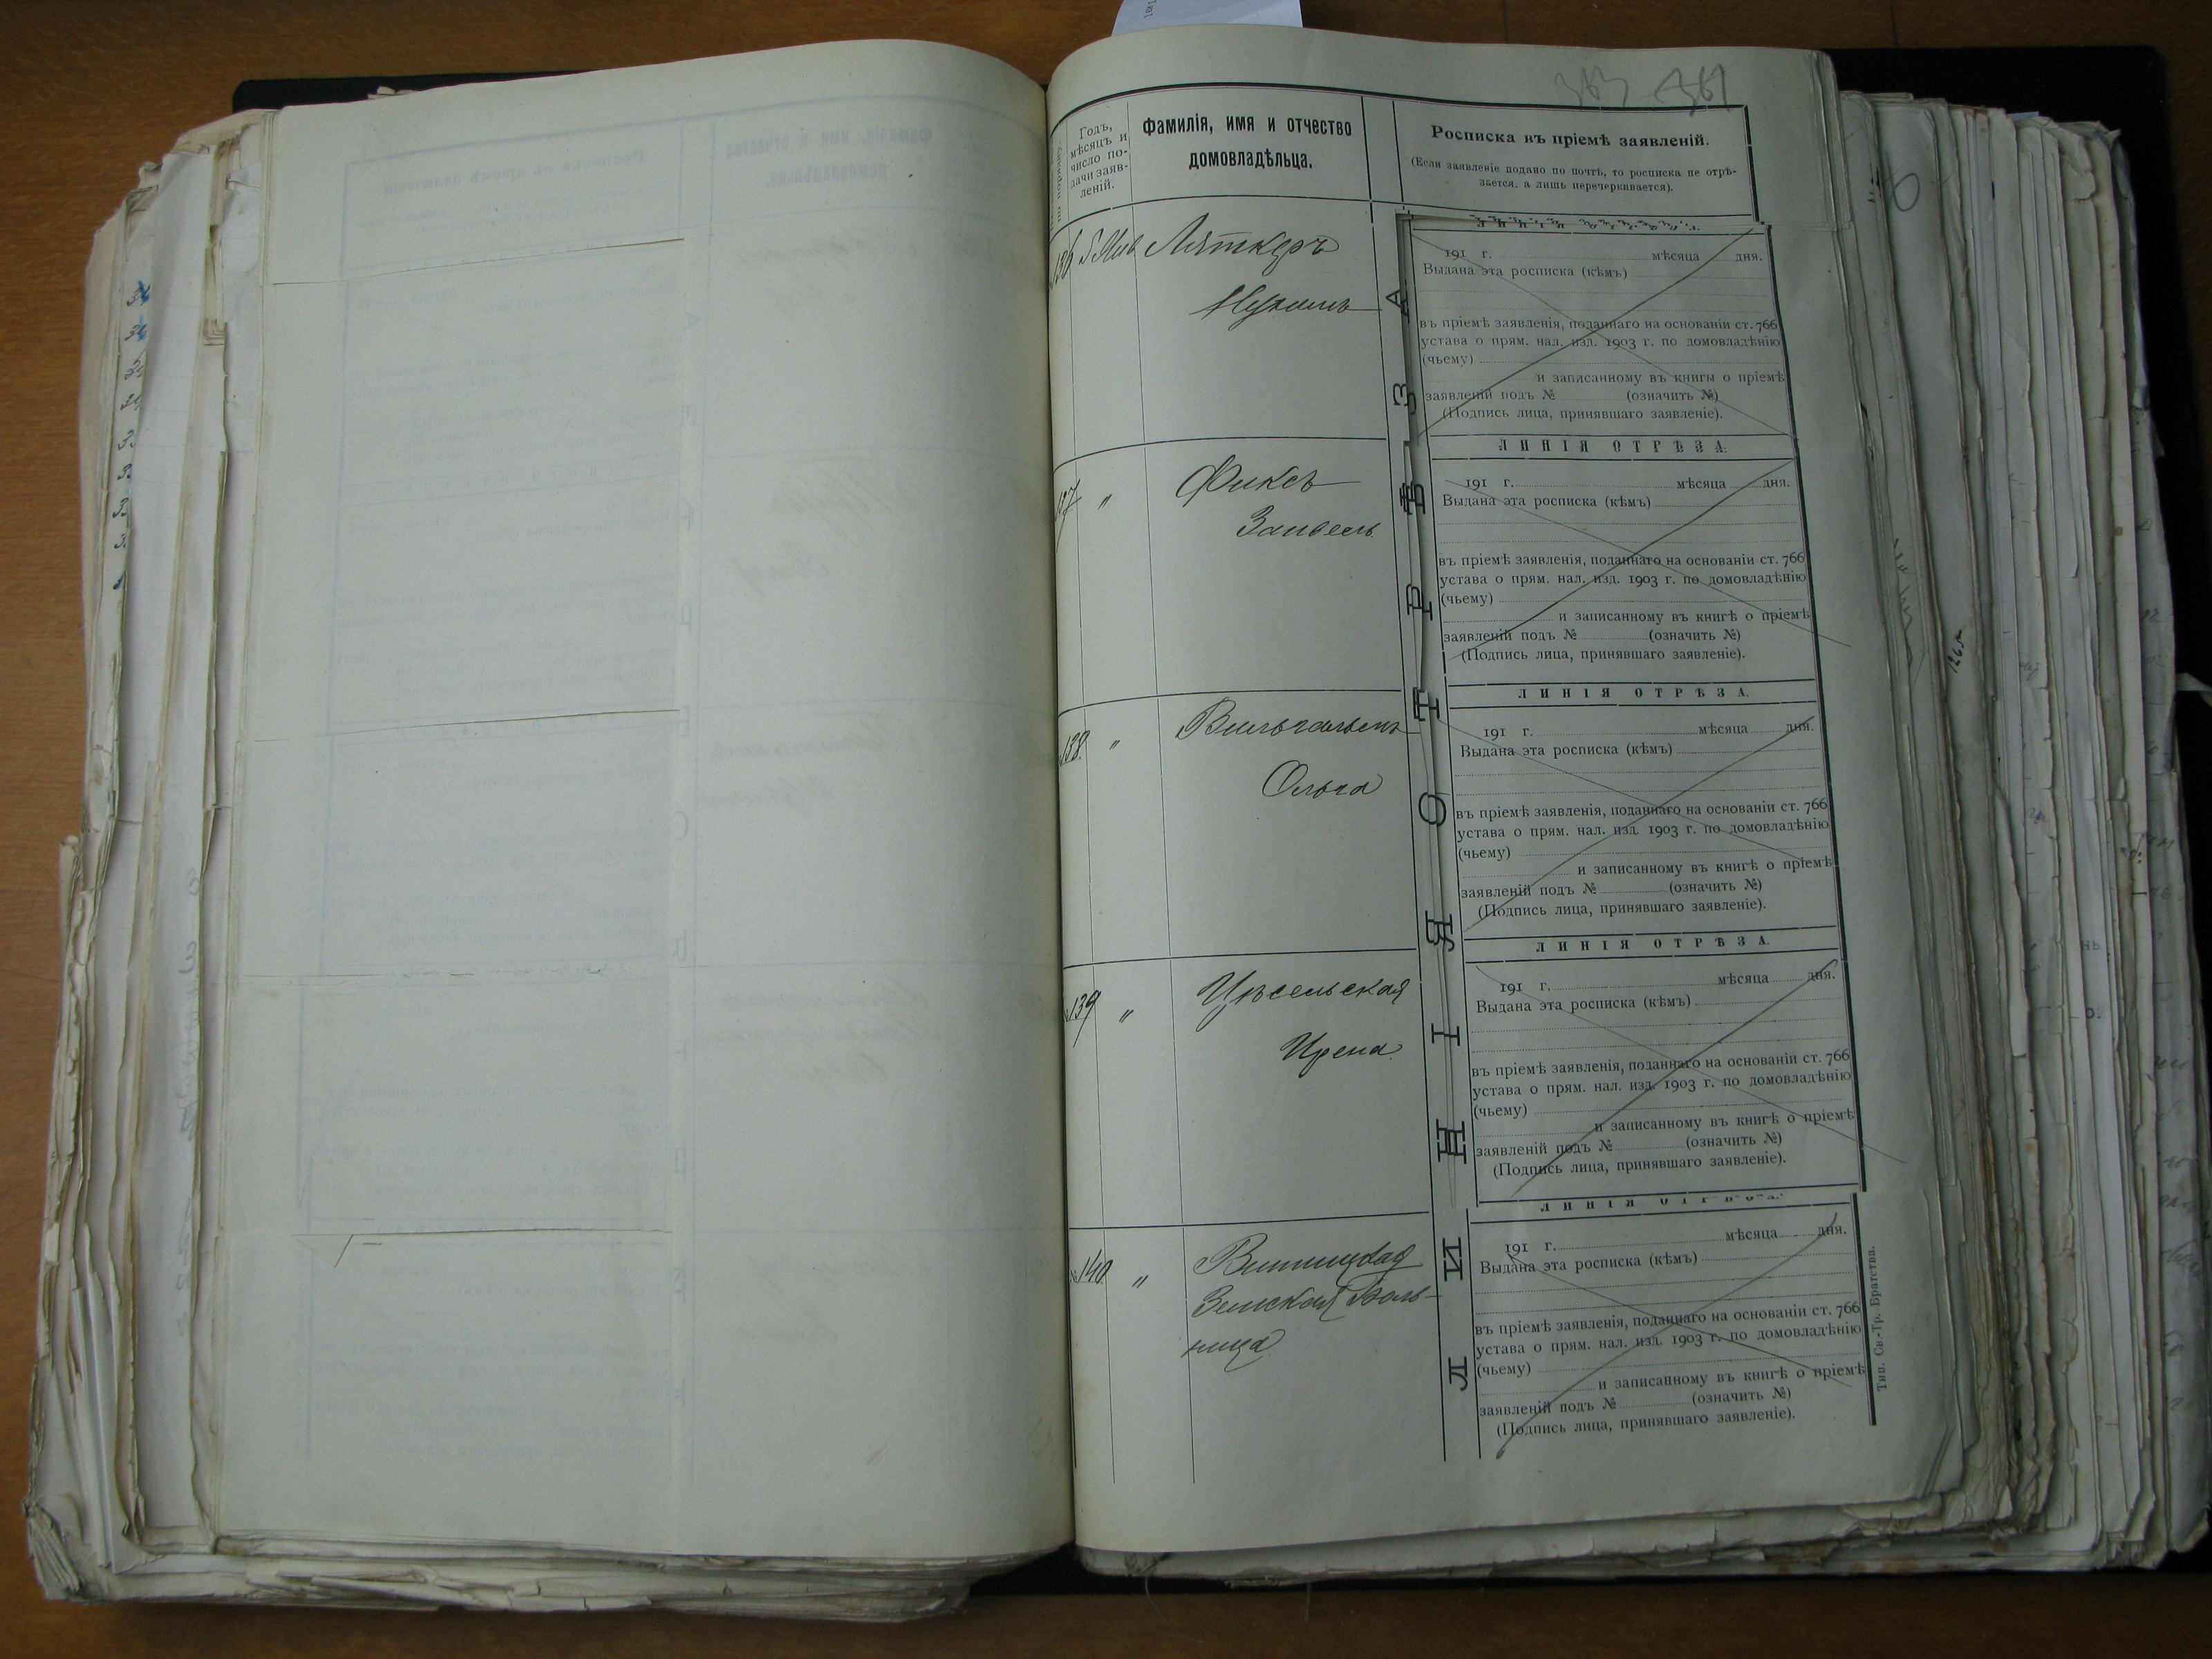 363 361
Годъ, мѣсяцъ и число подачи заявленій.
Фамилія, имя и отчество
домовладѣльца.
Росписка въ пріемѣ заявленій.
(Если заявленіе подано по почтѣ, то росписка не отрѣ-
зается, а лишь перечеркивается).
136 5 Янв
191 г. мѣсяца дня.
Выдана эта росписка (кѣмъ)
въ пріемѣ заявленія, поданнаго на основаніи ст. 766
устава о прям. нал. изд. 1903 г. по домовладѣнію
(чьему)
и записанному въ книгы о пріемѣ
заявленій подъ № (означить №)
(Подпись лица, принявшаго заявленіе).
ЛИНІЯ ОТРѢЗА.
137 " Фиксъ
Занвель
191 г. мѣсяца дня.
Выдана эта росписка (кѣмъ)
въ пріемѣ заявленія, поданнаго на основаніи ст. 766
устава о прям. нал. изд. 1903 г. по домовладѣнію
(чьему)
и записанному въ книгѣ о пріемѣ
заявленій подъ № (означить №)
(Подпись лица, принявшаго заявленіе).
ЛИНІЯ ОТРѢЗА.
138 "
Ольга
191 г. мѣсяца дня.
Выдана эта росписка (кѣмъ)
въ пріемѣ заявленія, поданнаго на основаніи ст. 766
устава о прям. нал. изд. 1903 г. по домовладѣнію
(чьему)
и записанному въ книгѣ о пріемѣ
заявленій подъ № (означить №)
(Подпись лица, принявшаго заявленіе).
ЛИНІЯ ОТРѢЗА.
139 "
Ирена
191 г. мѣсяца дня.
Выдана эта росписка (кѣмъ)
въ пріемѣ заявленія, поданнаго на основаніи ст. 766
устава о прям. нал. изд. 1903 г. по домовладѣнію
(чьему)
и записанному въ книгѣ о пріемѣ
заявленій подъ № (означить №)
(Подпись лица, принявшаго заявленіе).
ЛИНІЯ ОТРѢЗА.
140 " Винницкая
Земская Боль-
ница
191 г. мѣсяца дня.
Выдана эта росписка (кѣмъ)
въ пріемѣ заявленія, поданнаго на основаніи ст. 766
устава о прям. нал. изд. 1903 г. по домовладѣнію
(чьему)
и записанному въ книгѣ о пріемѣ
заявленій подъ № (означить №)
(Подпись лица, принявшаго заявленіе).
ЛИНІЯ ОТРѢЗА
Тип. Св.-Тр. Братства.